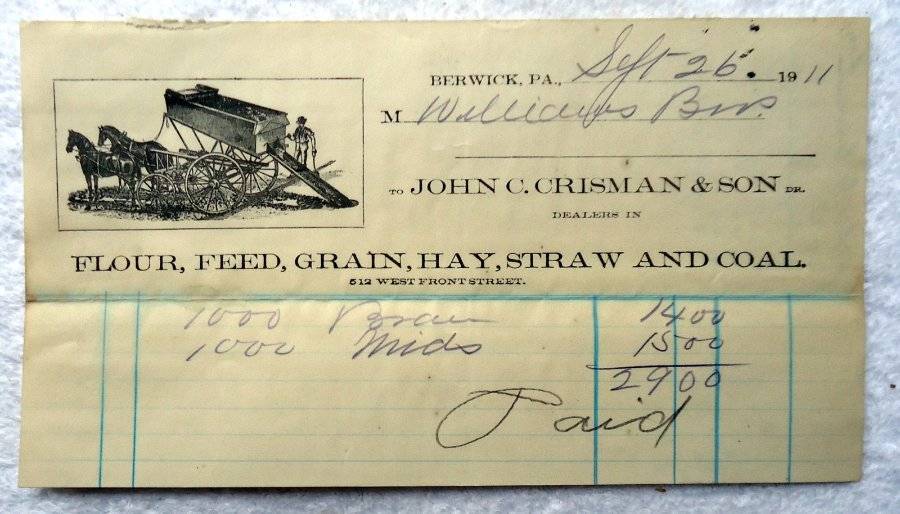 BERWICK, PA., Sept 26. 1911
M Williams Bros.
TO JOHN C. CRISMAN & SON DR.
DEALERS IN
FLOUR, FEED, GRAIN, HAY, STRAW AND COAL.
512 WEST FRONT STREET.
1000 Bran 1400
1000 Mids 1500
2900
Paid